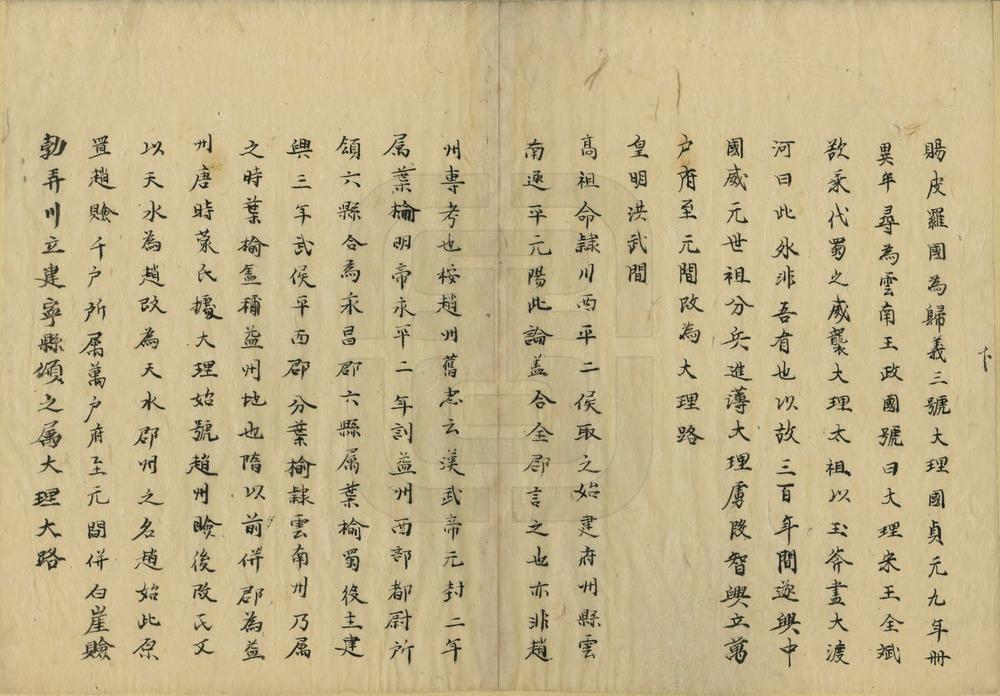 賜皮羅國為歸義三號大理國貞元九年冊
異年尋為雲南王政國號曰大理宋王全斌
欲乘代蜀之威襲大理太祖以玉斧畫大渡
河曰此外非吾有也以故三百年間遂與中
國威元世祖分兵進薄大理虜段智興立萬
户府至元間改為大理路
皇明洪武間
高祖命隷川西平二侯取之始建府州縣雲
南逐平元陽此論盖合全郡言之也亦非趙
州專考也桉趙州舊志云漢武帝元封二年
属葉榆明帝永平二年割益州西部都尉所
領六縣合為永昌郡六縣属葉榆蜀後主建
興三年武侯平西郡分葉榆隷雲南州乃属
之時葉榆盖稱益州地也隋以前併郡為益
州唐時蒙氏據大理始號趙州瞼後改氏文
以天水為趙改為天水郡州之名趙始此原
置趙瞼千户所属萬户府至元間併白崖瞼
勃弄川立建寧縣領之属大理大路
下